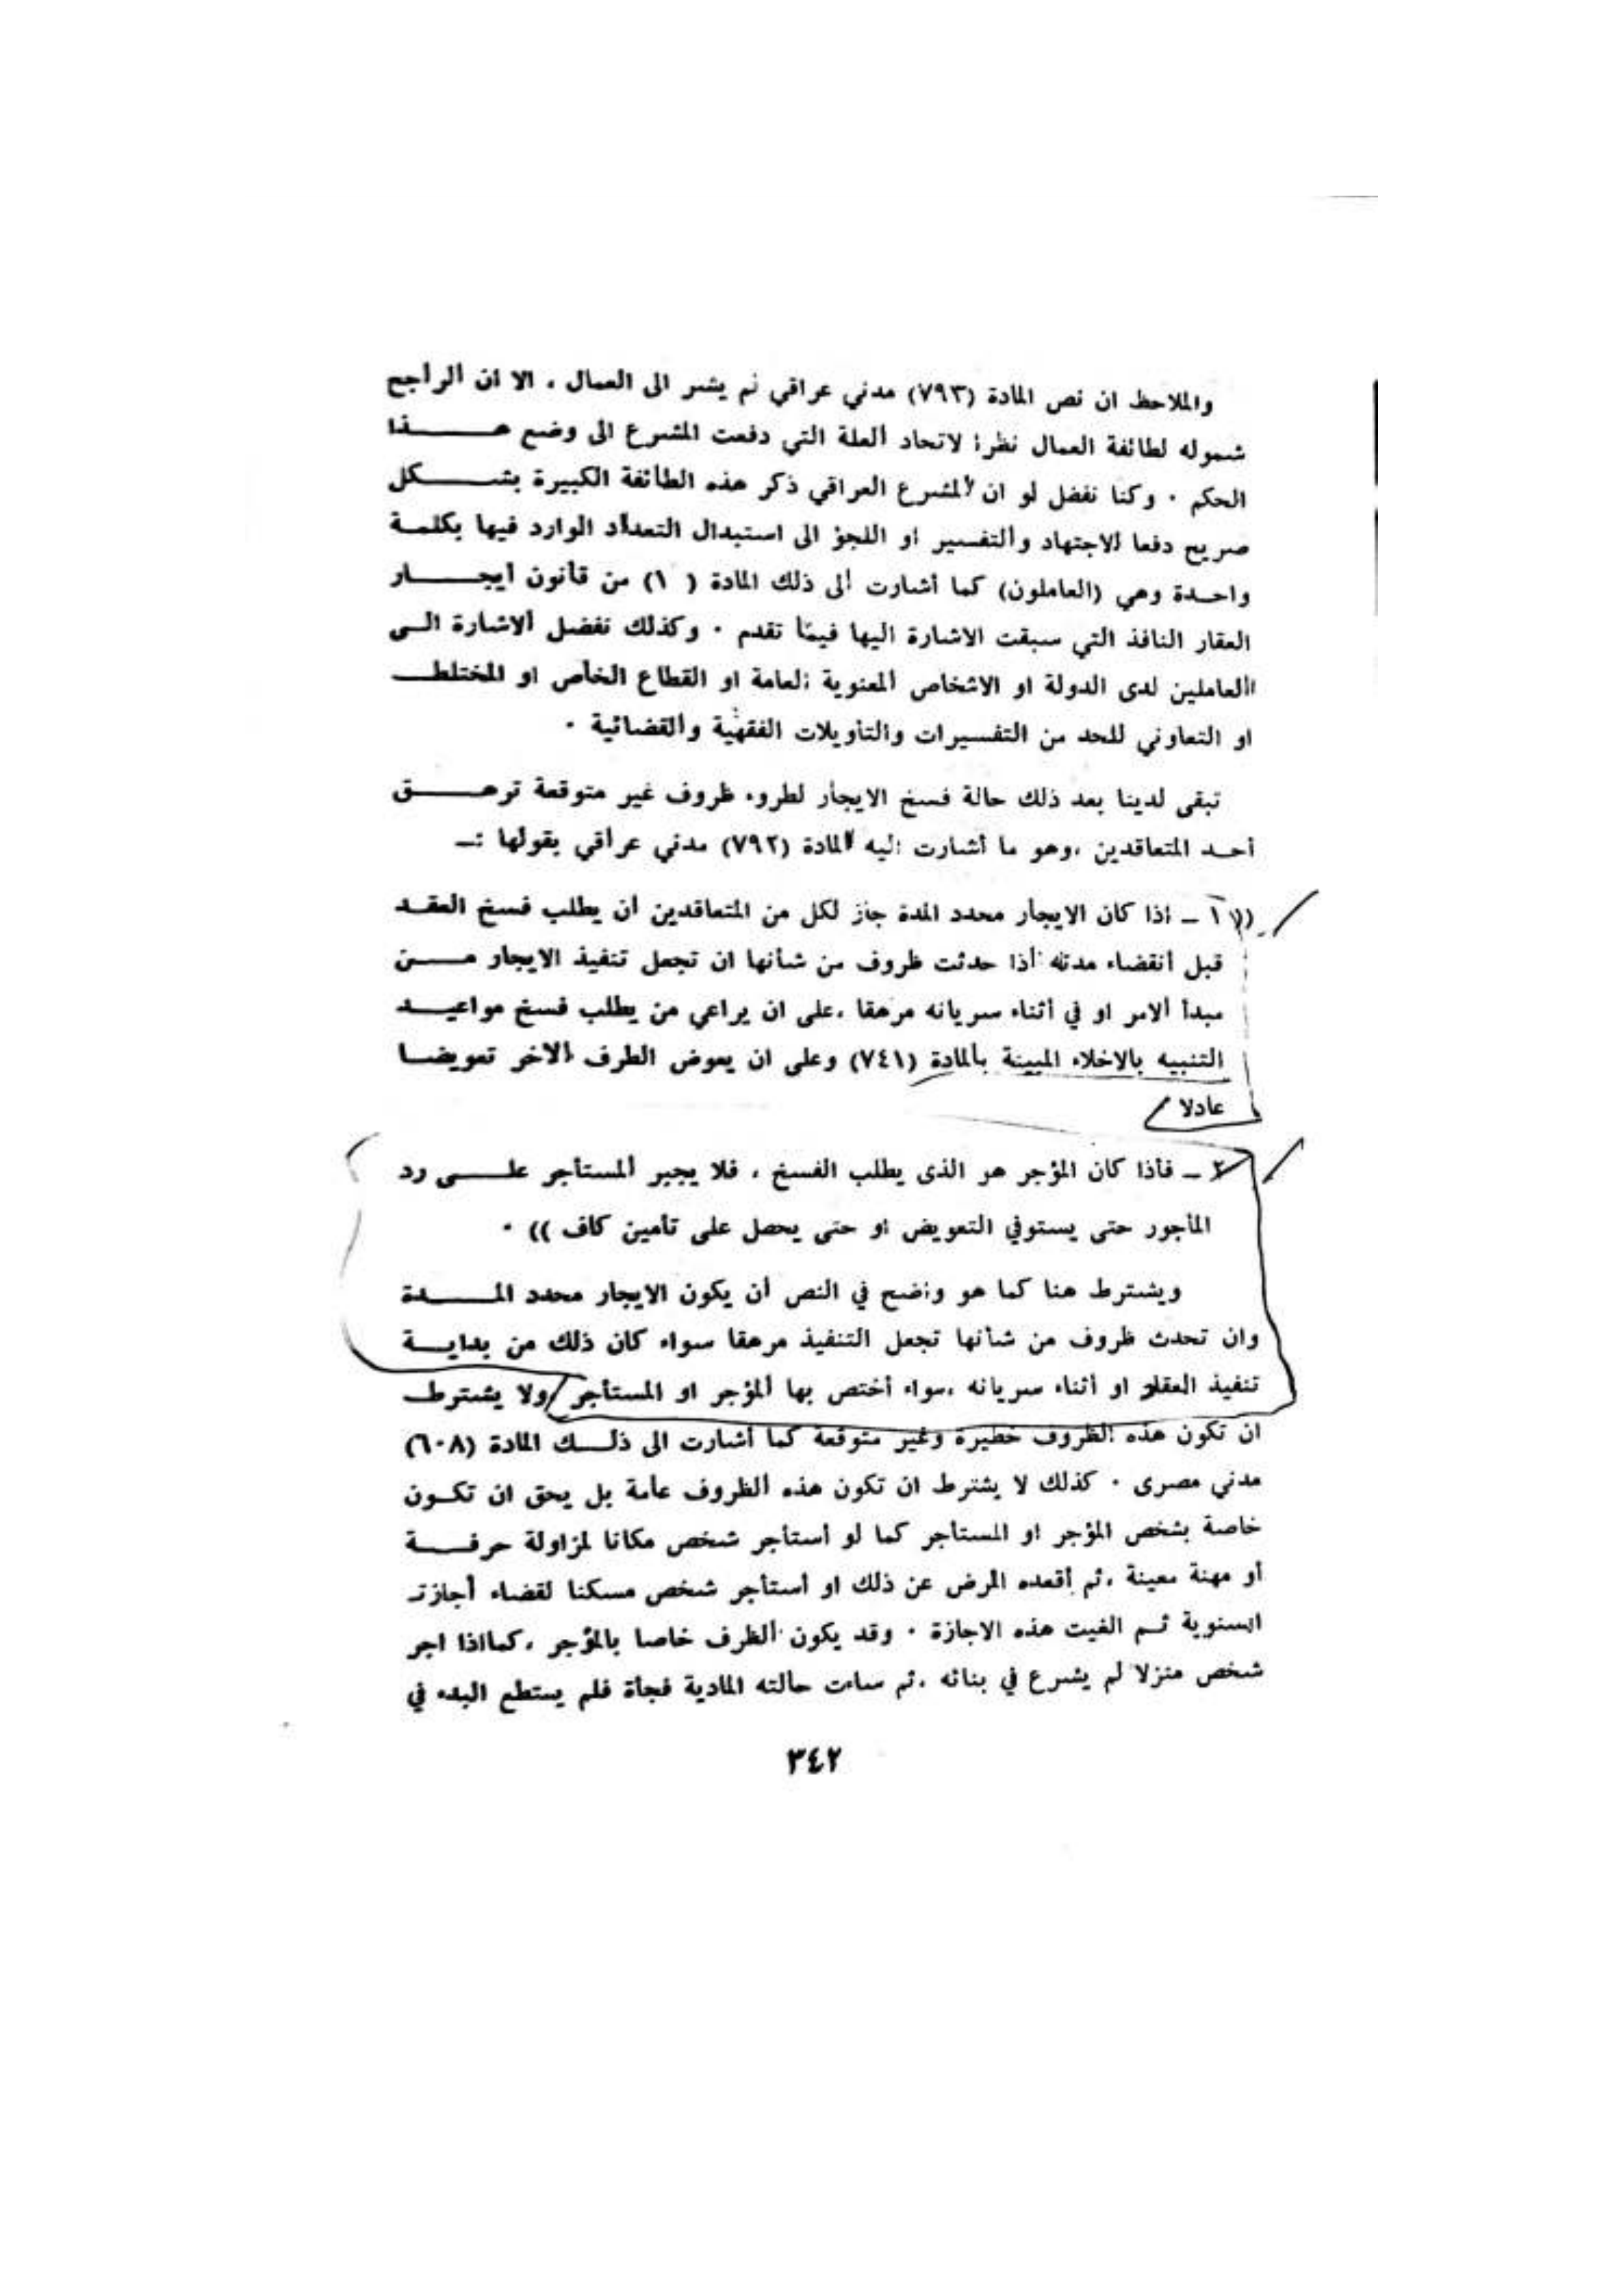 والملاحظ ان نص المادة (٧٩٣) مدني عراقي لم يشر الى العمال ، الا ان الراجح
شموله لطائفة العمال نظرا لاتحاد العلة التي دفعت المشرع الى وضع هــــــذا
الحكم ٠ وكنا نفضل لو ان المشرع العراقي ذكر هذه الطائفة الكبيرة بشـــــكل
صريح دفعا للاجتهاد والتفسير او اللجؤ الى استبدال التعداد الوارد فيها بكلمــة
واحــدة وهي (العاملون) كما أشارت الى ذلك المادة ( ١) من قانون ايجــــــار
العقار النافذ التي سبقت الاشارة اليها فيما تقدم ٠ وكذلك نفضل الاشارة الــى
العاملين لدى الدولة او الاشخاص المعنوية العامة او القطاع الخاص او المختلطــ
او التعاوني للحد من التفسيرات والتأويلات الفقهية والقضائية ٠
تبقى لدينا بعد ذلك حالة فسخ الايجار لطروء ظروف غير متوقعة ترهــــــق
أحــد المتعاقدين ،وهو ما أشارت اليه المادة (٧٩٢) مدني عراقي بقولها :ــ
((١ ــ اذا كان الايجار محدد المدة جاز لكل من المتعاقدين ان يطلب فسخ العقــد
قبل أنقضاء مدته أذا حدثت ظروف من شأنها ان تجعل تنفيذ الايجار مـــــن
مبدأ الامر او في أثناء سريانه مرهقا ،على ان يراعي من يطلب فسخ مواعيـــد
التنبيه بالاخلاء المبينة بالمادة (٧٤١) وعلى ان يعوض الطرف الاخر تعويضــا
عادلا
٢ ــ فأذا كان المؤجر هو الذى يطلب الفسخ ، فلا يجبر المستأجر علـــــى رد
المأجور حتى يستوفي التعويض او حتى يحصل على تأمين كاف )) ٠
ويشترط هنا كما هو واضح في النص أن يكون الايجار محدد المـــــــدة
وان تحدث ظروف من شأنها تجعل التنفيذ مرهقا سواء كان ذلك من بدايـــة
تنفيذ العقد او أثناء سريانه ،سواء أختص بها المؤجر او المستأجر ولا يشترطــ
ان تكون هذه الظروف خطيرة وغير متوقعة كما أشارت الى ذلـــك المادة (٦٠٨)
مدني مصرى ٠ كذلك لا يشترط ان تكون هذه الظروف عامة بل يحق ان تكــون
خاصة بشخص المؤجر او المستأجر كما لو أستأجر شخص مكانا لمزاولة حرفـــــة
أو مهنة معينة ،ثم أقعده المرض عن ذلك او أستأجر شخص مسكنا لقضاء أجازتـ
السنوية ثــم الغيت هذه الاجازة ٠ وقد يكون الظرف خاصا بالمؤجر ،كمااذا اجر
شخص منزلا لم يشرع في بنائه ،ثم ساءت حالته المادية فجأة فلم يستطع البدء في
٣٤٢